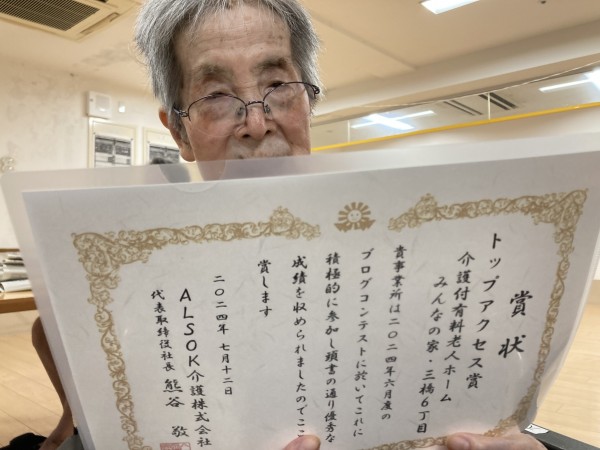 賞状
トップアクセス賞
介護付有料老人ホーム
みんなの家・三橋6丁目
貴事業所は二〇二四年六月度の
ブログコンテストに於いてこれに
積極的に参加し頭書の通り優秀な
成績を収められましたのでここ
賞します
二〇二四年 七月十二日
ALSOK介護株式会社
代表取締役社長 熊谷 敬